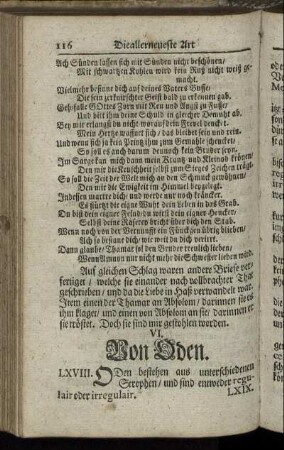 116 Die allerneueste Art
Ach Sünden lassen sich mit Sünden nicht beschönen/
Mit schwartzen Kohlen wird kein Ruß nicht weiß gemacht.
Vielmehr besinne dich auf deines Vaters Busse/
Die sein zerknirschter Geist bald zu erkennen gab.
Geh/ falle GOttes Zorn mit Reu und Angst zu Fusse/
Und bitt ihm deine Schuld in gleicher Demuth ab.
Bey mir erlangst du nicht worauf dein Frevel
Mein Hertze waffnet sich / das bleibet sein und rein.
Und wenn sich ja kein Printz ihm zum Gemahle
So soll es auch darum dennoch kein Bruder seyn.
Am Sarge kan mich dann mein Krantz und Kleinod krönen/
Den mir die Keuschheit selbst zum Sieges Zeichen trägt.
So soll die Zeit der Welt mich an den Schmuck gewöhnen/
Den mir die Ewigkeit im Himmel beygelegt.
Indessen martre dich/ und werde nur noch kräncker.
Es stürtzt die eigne Wuht dein Leben in das Grab.
Du bist dein eigner Feind/ du wirst dein eigner Hencker/
Selbst deine Raserey bricht über dich den Stab.
Wenn noch von der Vernunfft ein Fünckgen übrig blieben/
Ach so besinne dich/ wie weit du dich verirrt.
Dann glaube/ Thamar ist den Bruder treulich lieben/
Wenn Amnon nur nicht mehr die Schwester lieben wird.
Auf gleichen Schlag waren andere Briefe verfertiget /
welche sie einander nach vollbrachter That
geschrieben/ und da die Liebe in Haß verwandelt war.
Item einen der Thamar an Absolom/ darinnen sie es
ihm klaget/ und einen von Absolom an sie/ darinnen er
sie tröstet. Doch sie sind mir gestohlen worden.
VI.
Von Oden.
LXVIII. ODen bestehen aus unterschiedenen
Strophen/ und sind entweder regulair
oder irregulair.
LXIX.